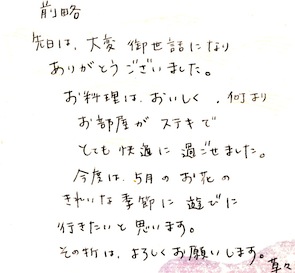 前略
先日は、大変 御世話になり
ありがとうございました。
お料理は、おいしく、何より
お部屋がステキで
とても快適に過ごせました。
今度は、5月のお花の
きれいな季節に遊びに
行きたいと思います。
その折は、よろしくお願いします。
草々